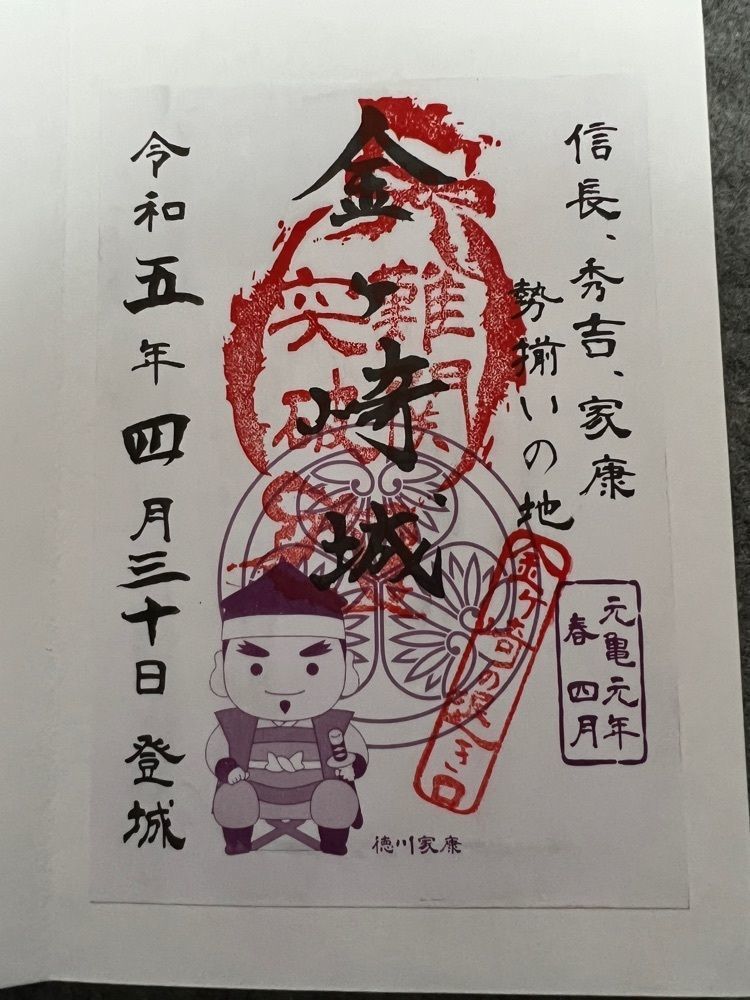 信長、秀吉、家康
勢揃いの地
金ヶ崎城
難関
突破
金ヶ崎の退き口
元亀元年
春 四月
令和五年四月三十日 登城
徳川家康